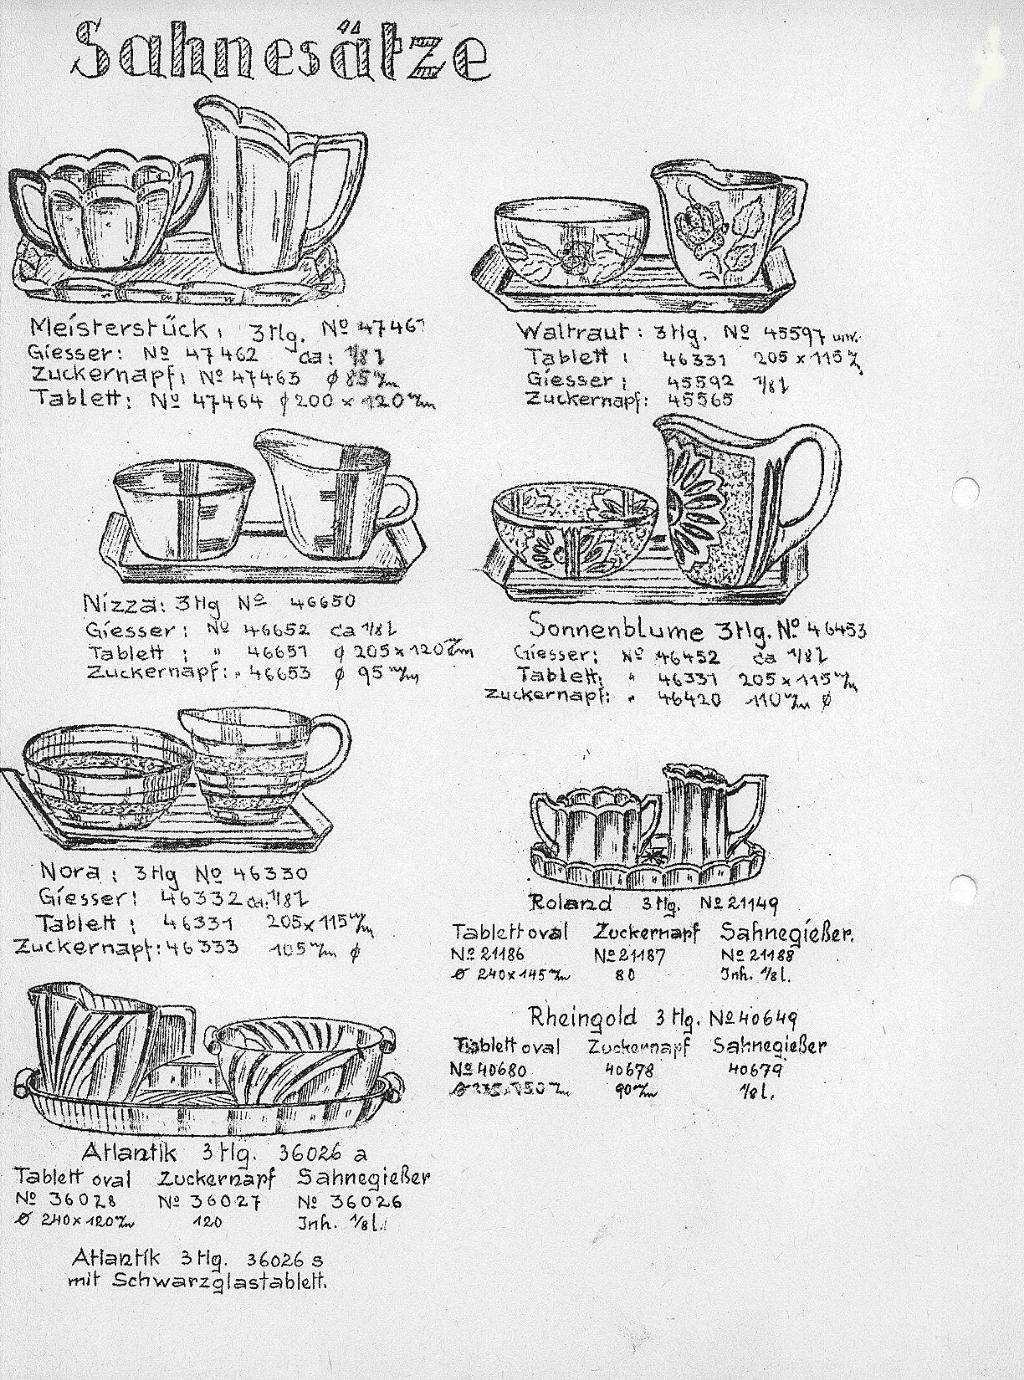 Sahnesätze
Meisterstück: 3tlg. No 47461
Giesser: No 47462 ca: 1/8 l
Zuckernapf: No 47463 ø 85 m/m
Tablett: No 47464 ø 200 x 120 m/m
Waltraut: 3tlg. No 45597
Tablett: 46331 205 x 115 m/m
Giesser: 45592 1/8 l
Zuckernapf: 45565
Nizza: 3tlg No 46650
Giesser: No 46652 ca 1/8 l
Tablett: " 46651 ø 205 x 120 m/m
Zuckernapf: " 46653 ø 95 m/m
Sonnenblume 3tlg. No 46453
Giesser: No 46452 ca 1/8 l
Tablett: " 46331 205 x 115 m/m
Zuckernapf: " 46420 110 m/m ø
Nora: 3tlg No 46330
Giesser: 46332 ca. 1/8 l
Tablett: 46331 205 x 115 m/m
Zuckernapf: 46333 105 m/m ø
Roland 3tlg. No 21149
Tablett oval Zuckernapf Sahnegießer.
No 21186 No 21187 No 21188
ø 240 x 145 m/m 80 Inh. 1/8 l.
Rheingold 3tlg. No 40649
Tablett oval Zuckernapf Sahnegießer
No 40680 40678 40679
90 m/m 1/8 l.
Atlantik 3tlg. 36026 a
Tablett oval Zuckernapf Sahnegießer
No 36028 No 36027 No 36026
ø 240 x 120 m/m 120 Inh. 1/8 l.
Atlantik 3tlg. 36026 s
mit Schwarzglastablett.